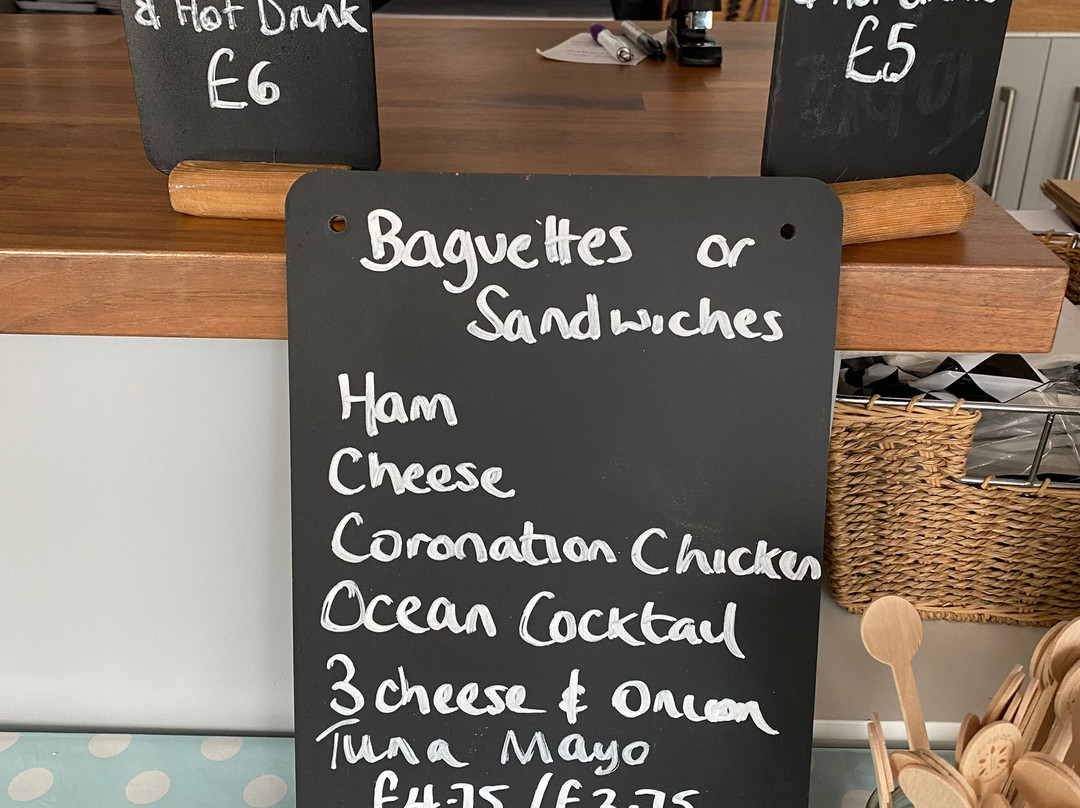 & Hot Drink
£6
£5
Baguettes or
Sandwiches
Ham
Cheese
Coronation Chicken
Ocean Cocktail
3 cheese & Onion
Tuna Mayo
£4.75 / £3.75